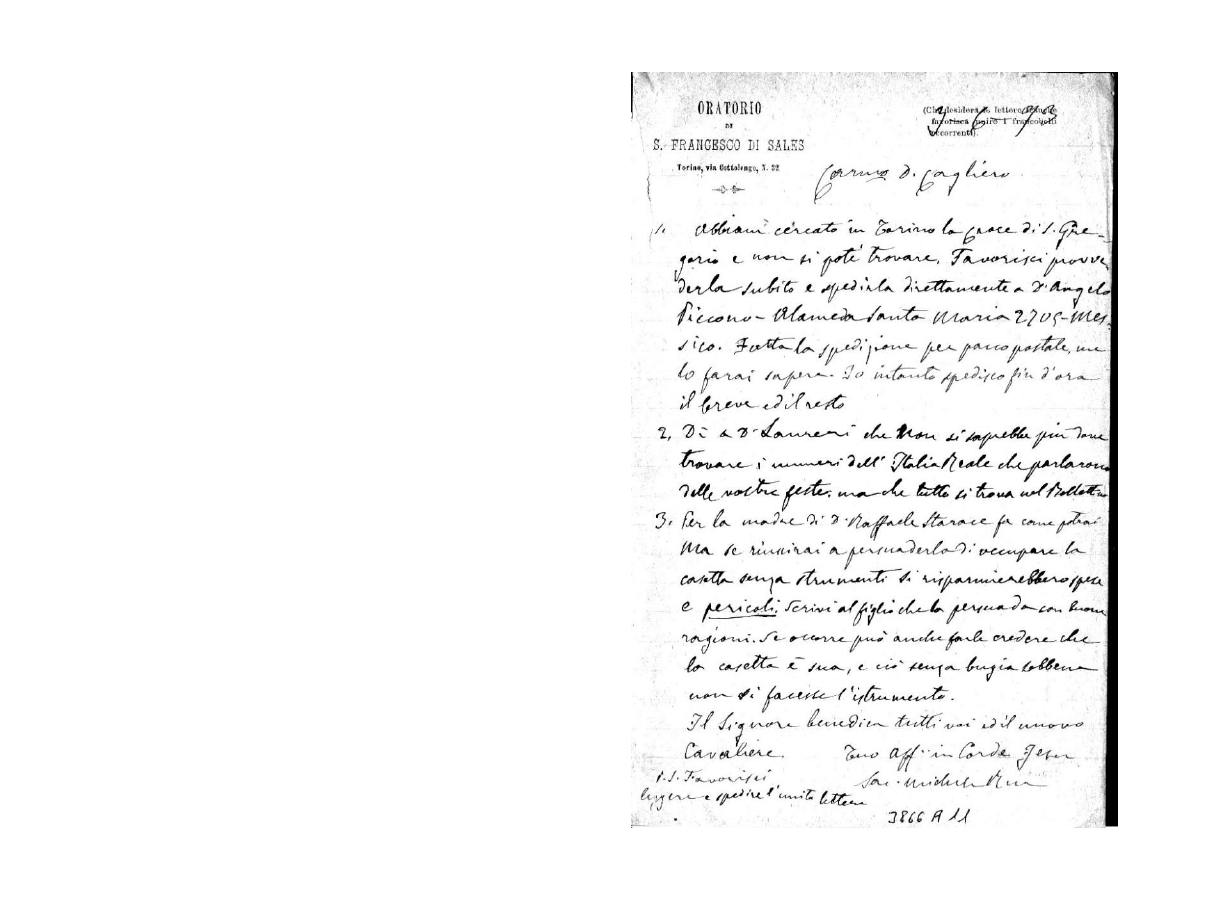 ORATORIO
DI
S. FRANCESCO DI SALES
Torino, via Cottolengo, N. 32
(Chi desidera lettere
favorisca unire i francobolli
occorrenti).
3 6 93
Carmo D. Cagliero
1. Abbiam cercato in Torino la croce di S. Gre-
gorio e non si poté trovare. Favorisci provve
derla subito e spedirla direttamente a D. Angelo
Piccono - Alameda Santa Maria 2705 - Mes-
sico. Fatta la spedizione per pacco postale, me
lo farai sapere. Io intanto spedisco fin d'ora
il breve ed il resto
2. Dì a D. Laureri che non si saprebbe più dove
trovare i numeri dell'Italia Reale che parlarono
delle vostre feste: ma che tutto si trova nel Bollettino
3. Per la madre di D. Raffaele Starace fa come potrai
Ma se riuscirai a persuaderla di occupare la
casetta senza strumenti si risparmierebbero spese
e pericoli. Scrivi al figlio che la persuada con buone
ragioni. Se occorre può anche farle credere che
la casetta è sua, e ciò senza bugia sebbene
non si facesse l'istrumento.
Il Signore benedica tutti voi ed il nuovo
Cavaliere. Tuo aff. in Corde Jesu
Sac. Michele Rua
P.S. Favorisci
leggere e spedire l'unita lettera
3866 A 11